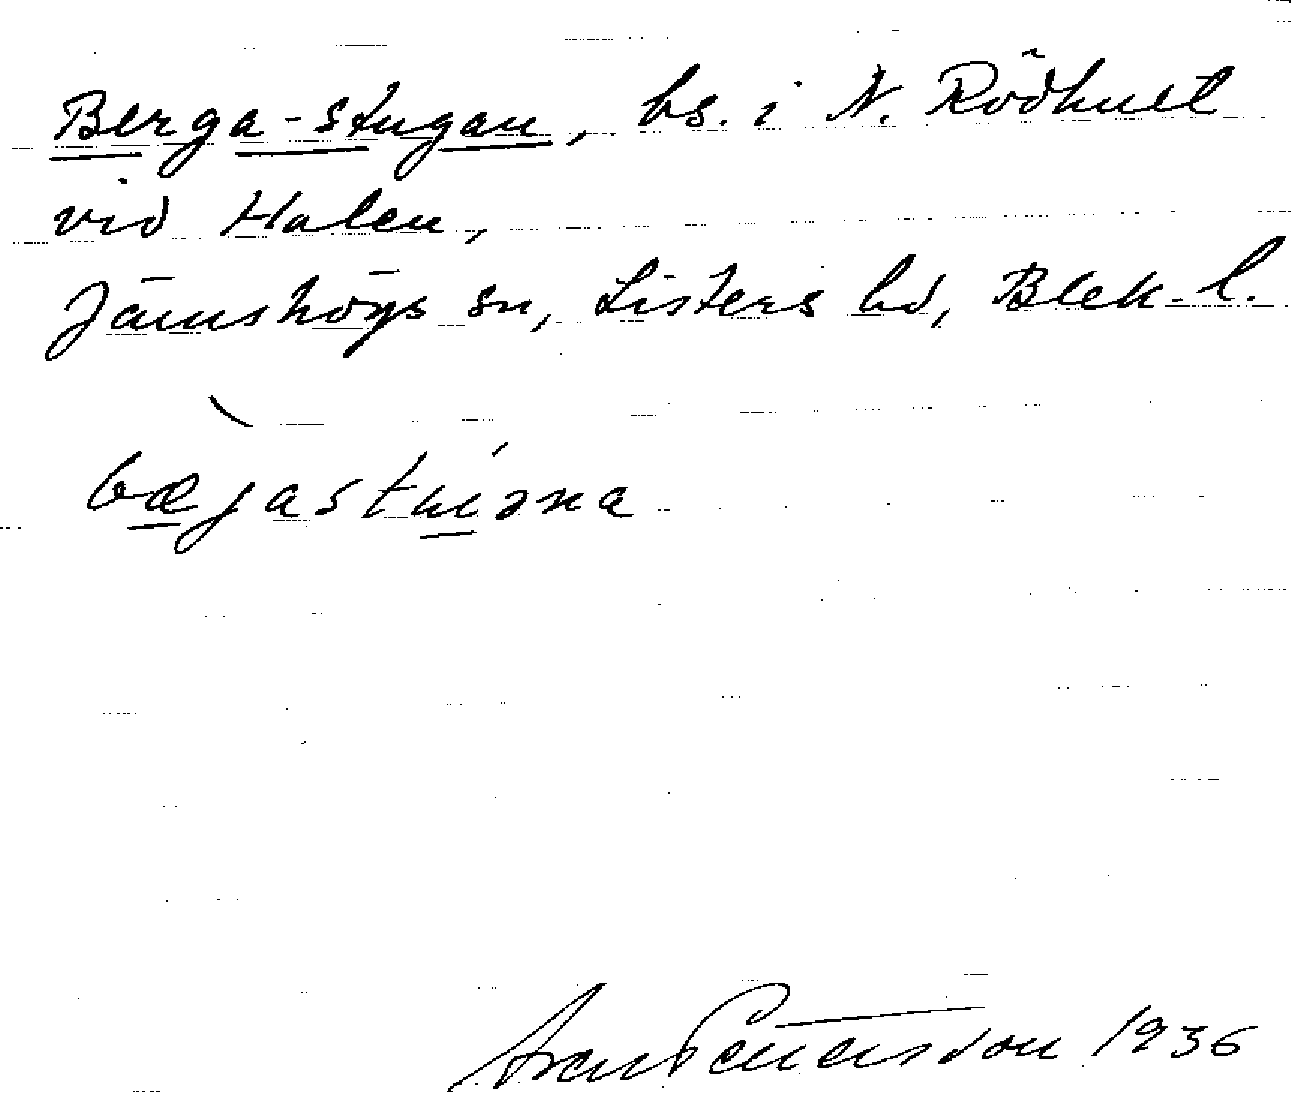 Berga-stugan, bs. i N. Rödhult
vid Halen,
Jämshögs sn, Listers hd, Blek. l.
bæjastuəna
Petterson 1936